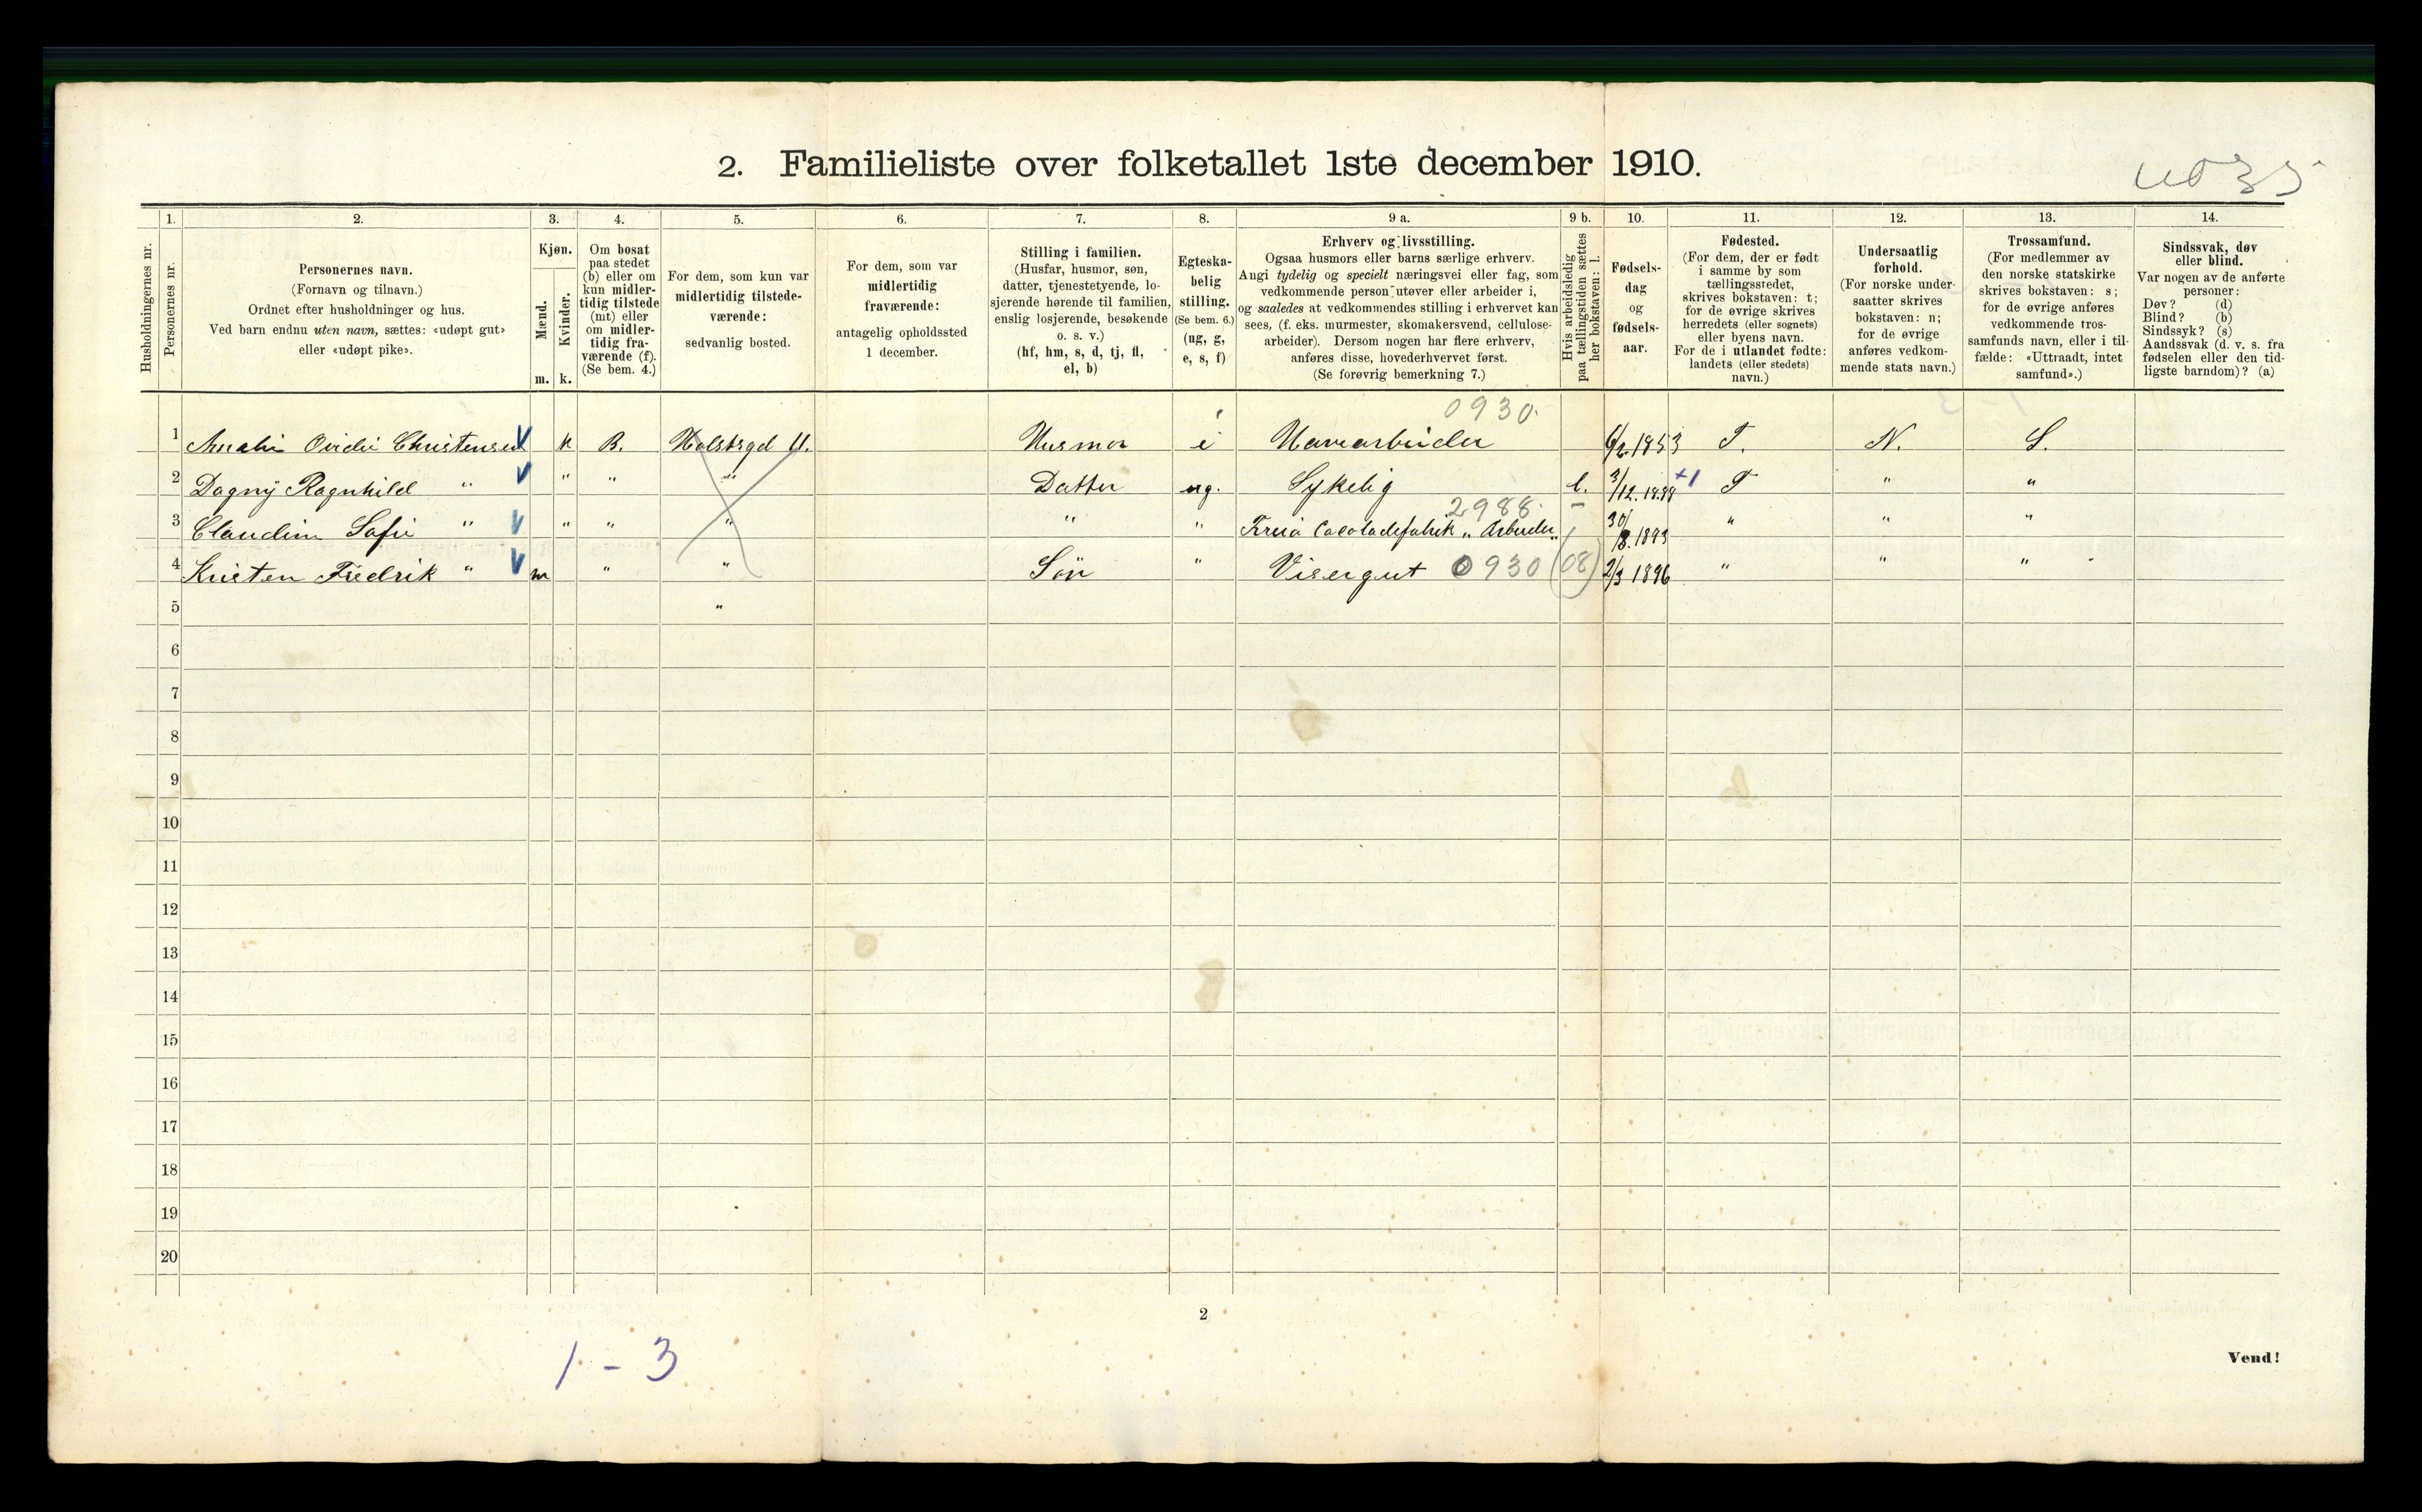 2. Familieliste over folketallet 1ste december 1910.
1. 2. 3. 4. 5. 6. 7. 8. 9 a. 9 b. 10. 11. 12. 13. 14.
Husholdningernes nr.
Personernes nr.
Personernes navn.
(Fornavn og tilnavn.)
Ordnet efter husholdninger og hus.
Ved barn endnu uten navn, sættes: «udøpt gut»
eller «udøpt pike».
Kjøn.
Mænd.
Kvinder.
m. k.
Om bosat
paa stedet
(b) eller om
kun midler-
tidig tilstede
(mt) eller
om midler-
tidig fra-
værende (f).
(Se bem. 4.)
For dem, som kun var
midlertidig tilstede-
værende:
sedvanlig bosted.
For dem, som var
midlertidig
fraværende:
antagelig opholdssted
1 december.
Stilling i familien.
(Husfar, husmor, søn,
datter, tjenestetyende, lo-
sjerende hørende til familien,
enslig losjerende, besøkende
o. s. v.)
(hf, hm, s, d, tj, fl,
el, b)
Egteska-
belig
stilling.
(Se bem. 6.)
(ug, g,
e, s, f)
Erhverv og livsstilling.
Ogsaa husmors eller barns særlige erhverv.
Angi tydelig og specielt næringsvei eller fag, som
vedkommende person utøver eller arbeider i,
og saaledes at vedkommendes stilling i erhvervet kan
sees, (f. eks. murmester, skomakersvend, cellulose-
arbeider). Dersom nogen har flere erhverv,
anføres disse, hovederhvervet først.
(Se forøvrig bemerkning 7.)
Hvis arbeidsledig
paa tællingstiden sættes
her bokstaven: l.
Fødsels-
dag
og
fødsels-
aar.
Fødested.
(For dem, der er født
i samme by som
tællingsstedet,
skrives bokstaven: t;
for de øvrige skrives
herredets (eller sognets)
eller byens navn.
For de i utlandet fødte:
landets (eller stedets)
navn.)
Undersaatlig
forhold.
(For norske under-
saatter skrives
bokstaven: n;
for de øvrige
anføres vedkom-
mende stats navn.)
Trossamfund.
(For medlemmer av
den norske statskirke
skrives bokstaven: s;
for de øvrige anføres
vedkommende tros-
samfunds navn, eller i til-
fælde: «Uttraadt, intet
samfund».)
Sindssvak, døv
eller blind.
Var nogen av de anførte
personer:
Døv? (d)
Blind? (b)
Sindssyk? (s)
Aandssvak (d. v. s. fra
fødselen eller den tid-
ligste barndom)? (a)
0930
1 Christensen k B. Husmor e T. N. S.
2 Dagny Ragnhild " " " " Datter ug. Sykelig l. 3/12. +1 T " "
2988
3 Claudine Sofie " " " " " " Freia Arbeider 30/8. 1893 " " "
4 Kristen Fredrik " m " " Søn " Visergut 0930 (08) 2/3 1896 " " "
5 "
6
7
8
9
10
11
12
13
14
15
16
17
18
19
20
2
1 - 3
Vend!